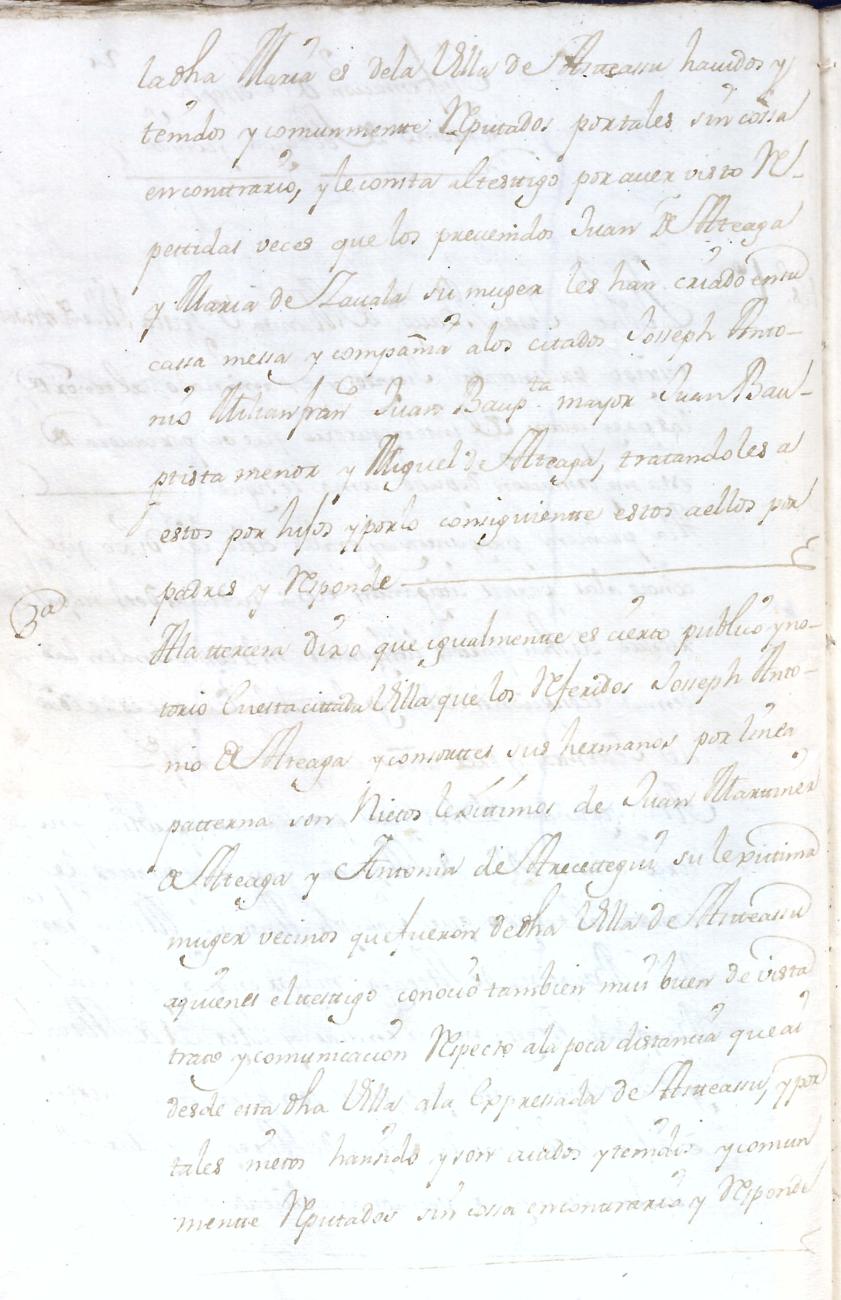 la dha Maria es dela Villa de Atteassu hauidos y
tenidos y comunmentte Reputados por tales sin cossa
en conttrario, y le consta al testtigo por auer visto Re-
pettidas veces que los prevenidos Juan De Atteaga
y Maria de Zauala su muger les han criado en su
cassa messa y compañia a los citados Josseph Anto-
nio Milian fran Juan Baupta mayor Juan Bau-
ptista menor y Miguel de Atteaga, tratandoles a
estos por hijos y por lo consiguientte estos a ellos por
padres y Responde
3a
A la ttercera dixo que igualmentte es cierto publico y no-
torio en esta cittada Villa que los Referidos Josseph Anto-
nio De Atteaga y consorttes sus hermanos por linea
patterna son Nietos lexittimos de Juan Martinez
de Atteaga y Antonia de Arecettegui su lexittima
muger vecinos que fueron de dha Villa de Atteassu
a quienes el testtigo conocio tambien mui bien de vista
trato y comunicacion Respecto a la poca distancia que ai
desde esta dha Villa a la Expressada de Atteassu, y por
tales nietos han sido y son auidos y tenidos y comun
mentte Reputados sin cossa en conttrario y Responde